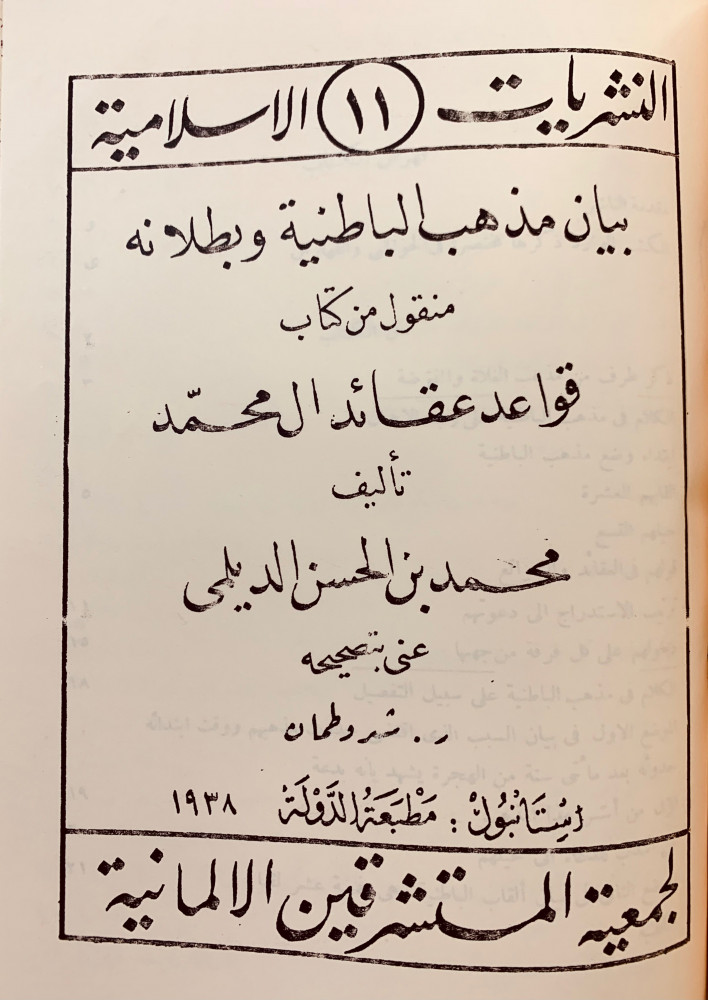 النشريات ١١ الاسلامية
بيان مذهب الباطنية وبطلانه
منقول من كتاب
قواعد عقائد ال محمّد
تأليف
محمد بن الحسن الديلمى
عنى بتصحيحه
ر. شدوطمان
اِسْتَانْبُولْ : مَطْبَعَةُ الدَّوْلَةْ ١٩٣٨
لجمعية المستشرقين الالمانية